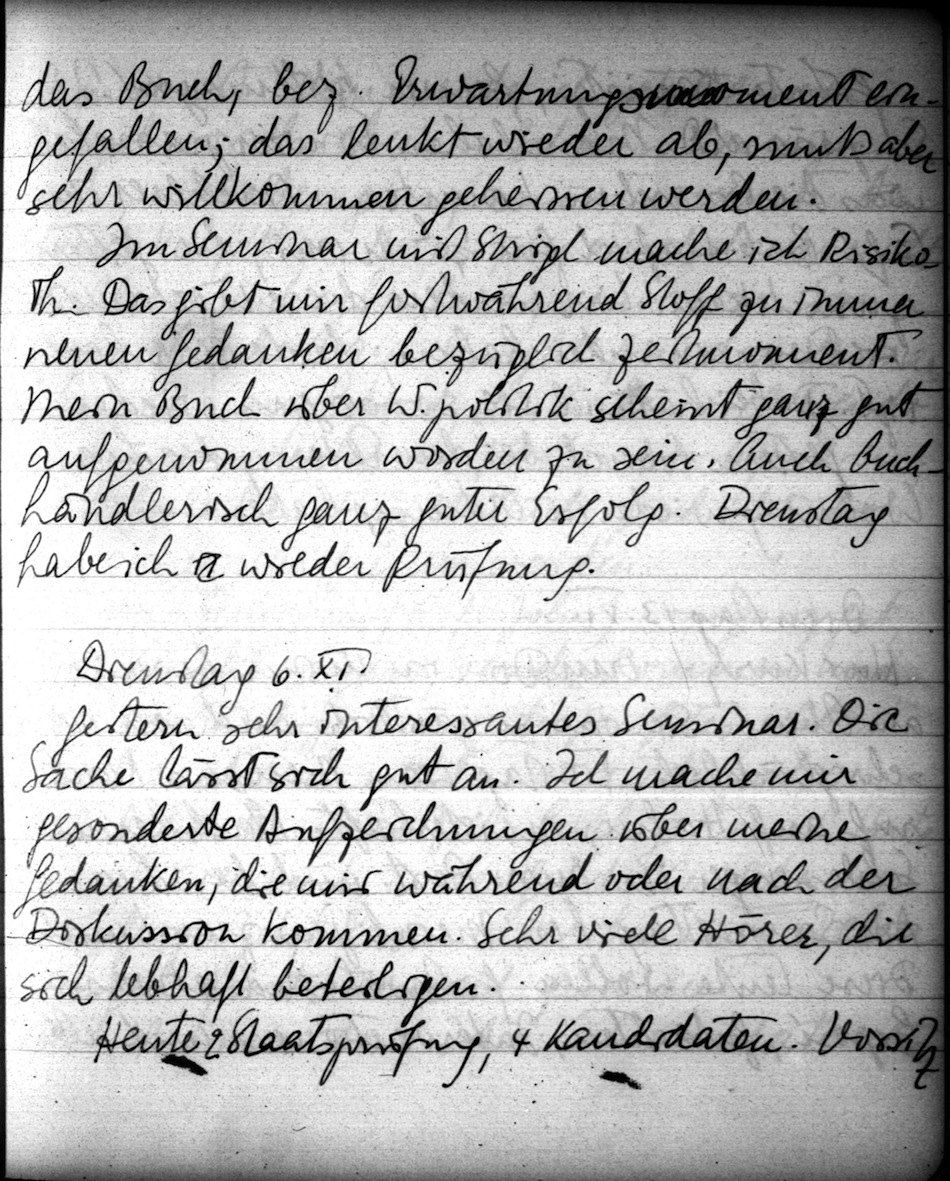 das Buch, bez. Erwartungsmoment ein-
gefallen; das lenkt wieder ab, muß aber
sehr willkommen geheissen werden.
Im Seminar mit Strigl mache ich Risiko-
th. Das gibt mir fortwährend Stoff zu immer
neuen Gedanken bezüglich Zeitmoment.
Mein Buch über W.politik scheint ganz gut
aufgenommen worden zu sein. Auch buch-
händlerisch ganz guter Erfolg. Dienstag
habe ich wieder Prüfung.
Dienstag 6. XI.
Gestern sehr interessantes Seminar. Die
Sache lässt sich gut an. Ich mache mir
gesonderte Aufzeichnungen über meine
Gedanken, die mir während oder nach der
Diskussion kommen. Sehr viele Hörer, die
sich lebhaft beteiligen.
Heute 2 Staatsprüfung, 4 Kandidaten. Vorsitz